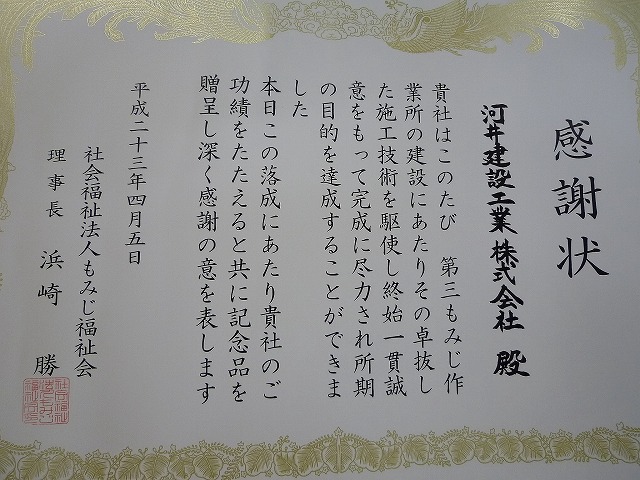 感謝状
河井建設工業株式会社 殿
貴社はこのたび 第三もみじ作
業所の建設にあたりその卓抜し
た施工技術を駆使し終始一貫誠
意をもって完成に尽力され所期
の目的を達成することができま
した
本日この落成にあたり貴社のご
功績をたたえると共に記念品を
贈呈し深く感謝の意を表します
平成二十三年四月五日
社会福祉法人もみじ福祉会
理事長 浜崎 勝